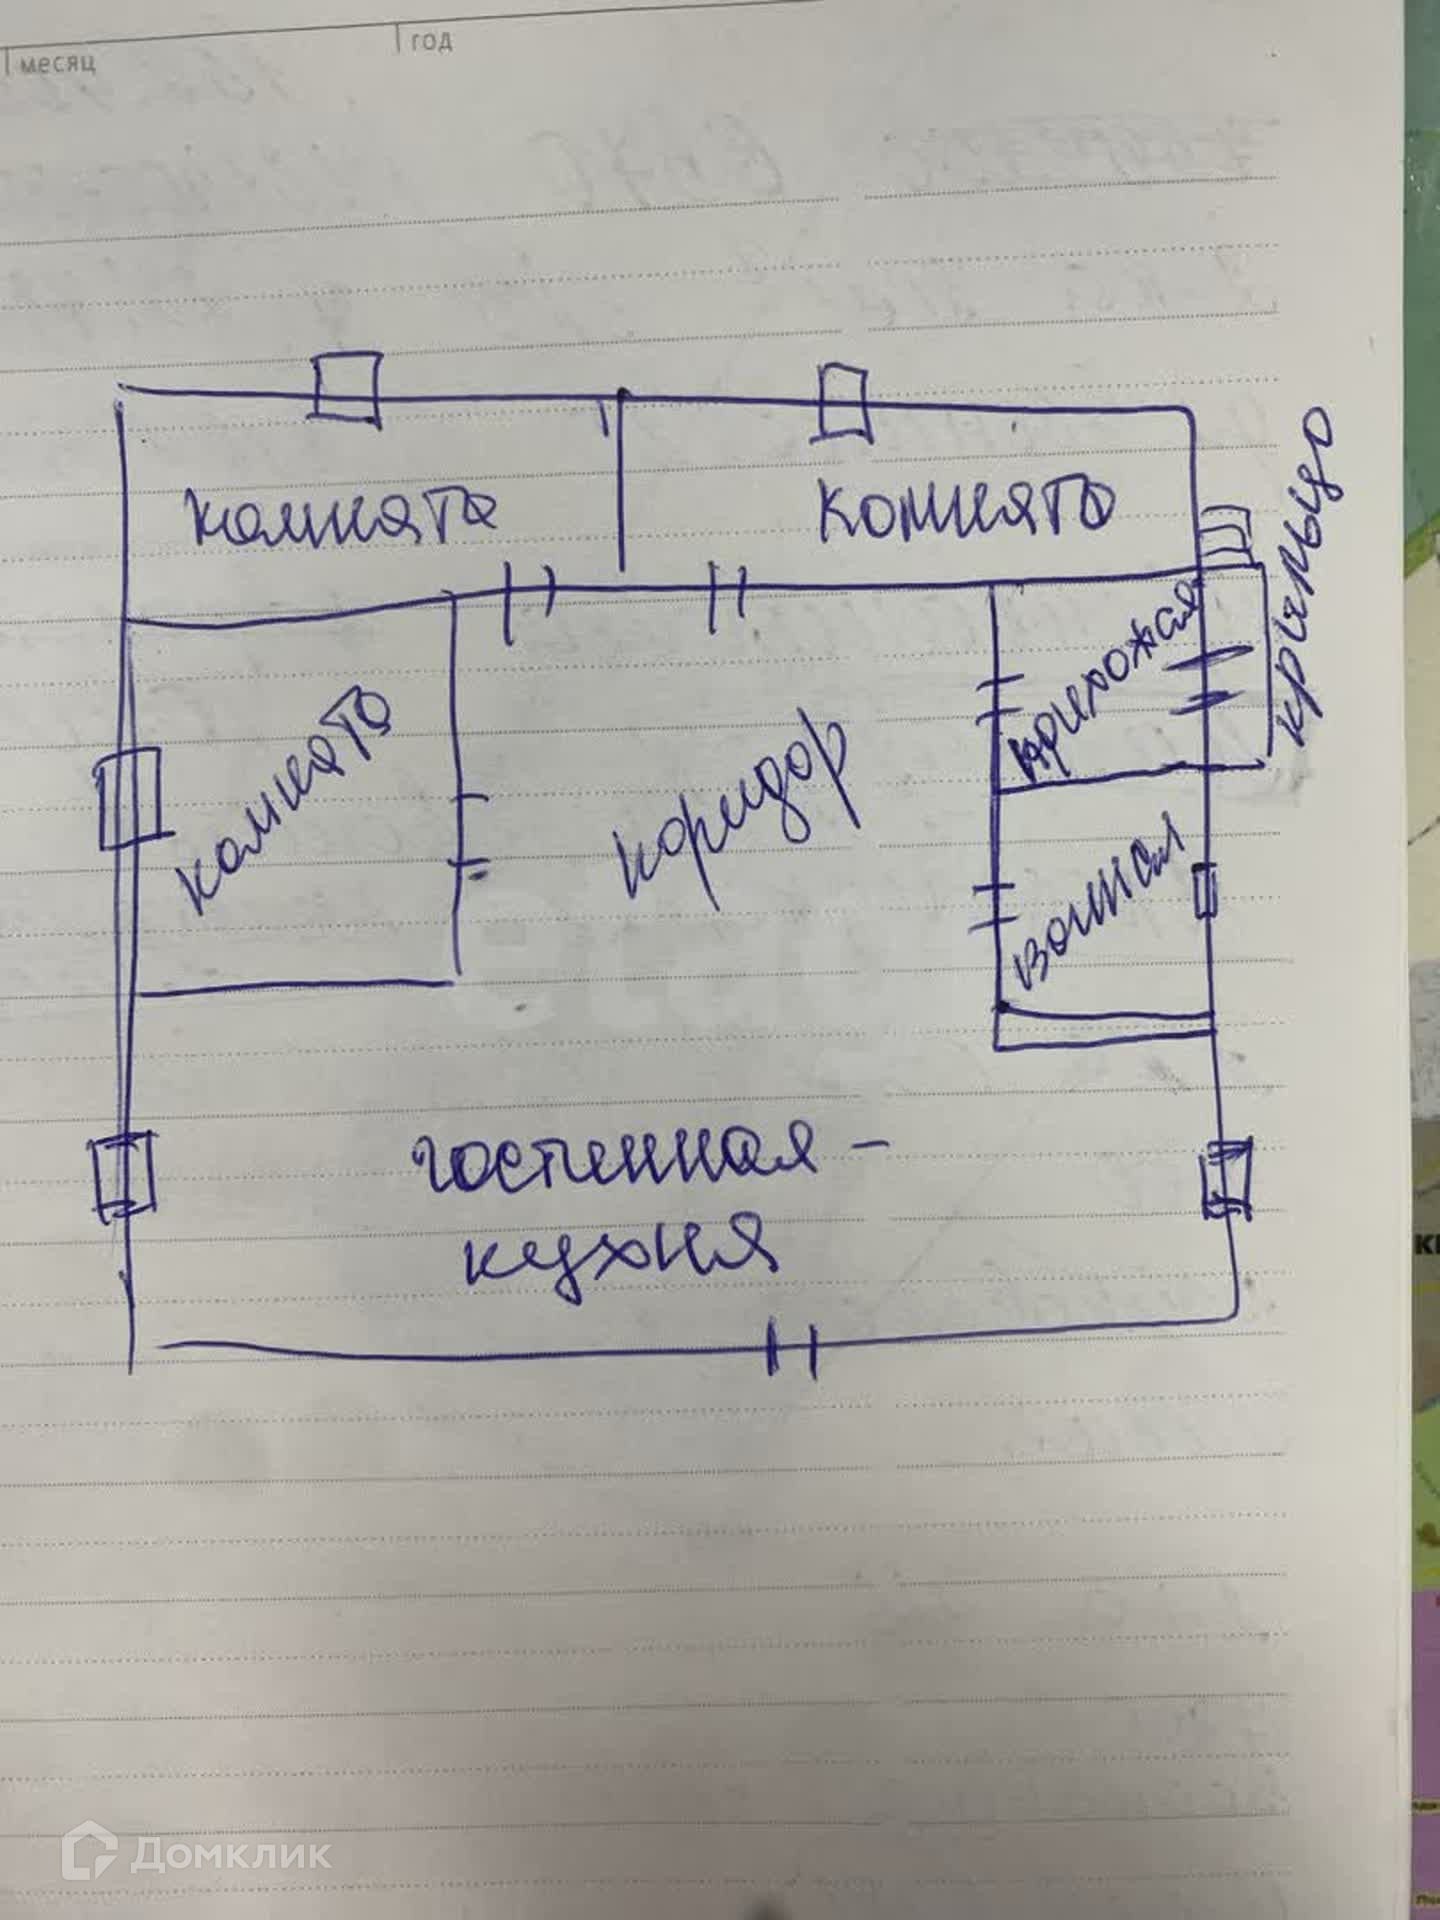 месяц
год
комната
комната
крыльцо
прихожая
комната
коридор
ванная
гостенная -
кухня
Домклик